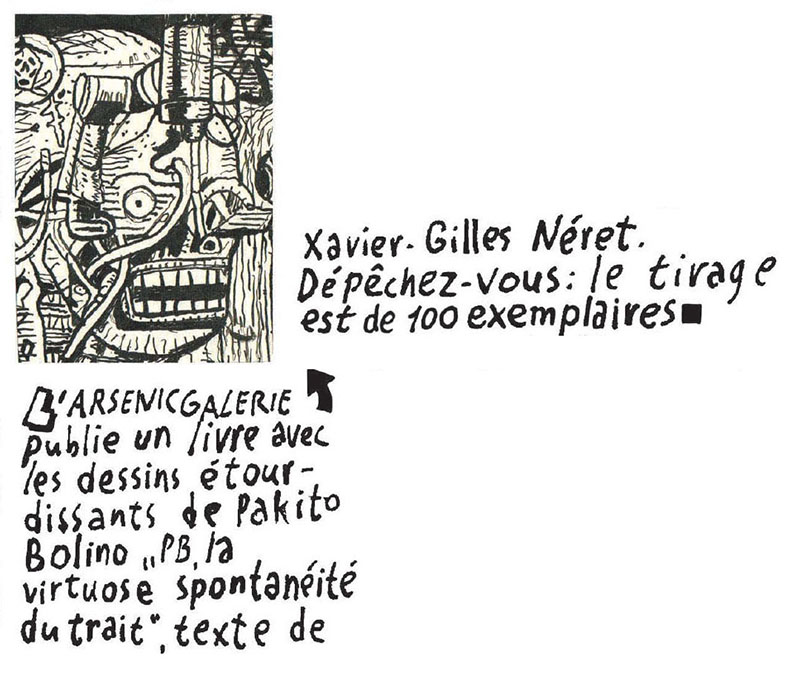 L'ARSENICGALERIE
publie un livre avec
les dessins étour-
dissants de Pakito
Bolino „PB, la
virtuose spontanéité
du trait", texte de
Xavier-Gilles Néret.
Dépêchez-vous: le tirage
est de 100 exemplaires■